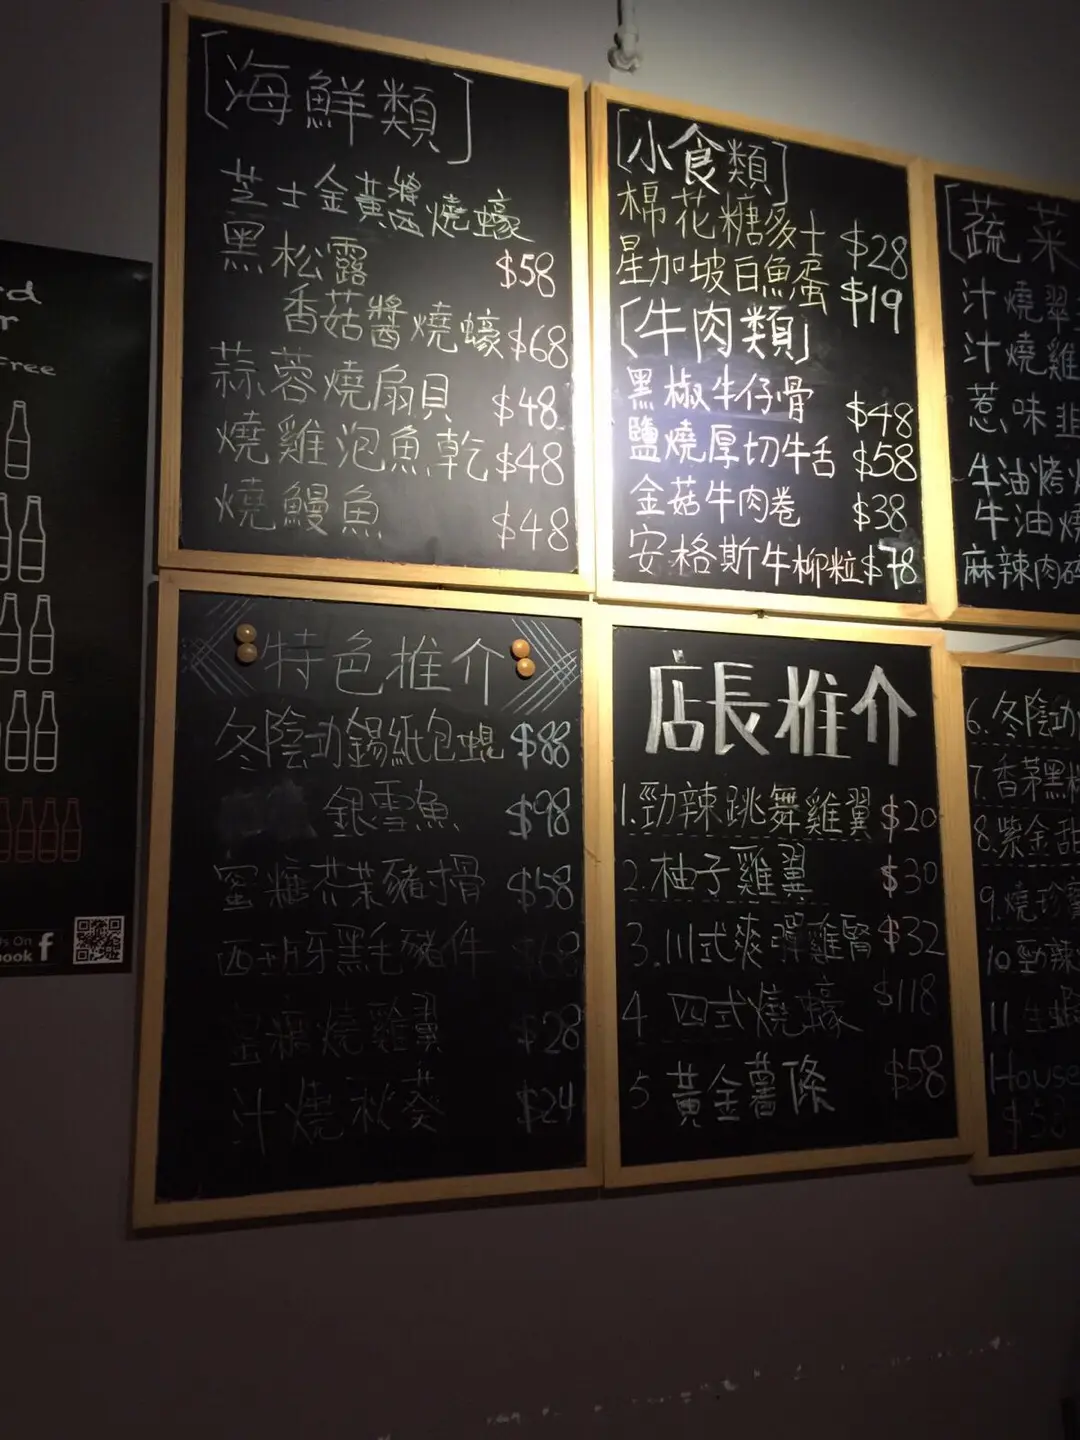 [海鮮類]
芝士金黃醬燒蠔 $58
黑松露
香菇醬燒蠔 $68
蒜蓉燒扇貝 $48
燒雞泡魚乾 $48
燒鰻魚 $48
[小食類]
棉花糖多士 $28
星加坡白魚蛋 $19
[牛肉類]
黑椒牛仔骨 $48
鹽燒厚切牛舌 $58
金菇牛肉卷 $38
安格斯牛柳粒 $78
[蔬菜
汁燒翠
汁燒雞
惹味韭
牛油烤
牛油燒
麻辣肉碎
特色推介
冬陰功錫紙包蜆 $88
銀雪魚 $98
蜜糖芥茉豬 $58
西班牙黑毛豬件 $68
蜜糖燒雞翼 $28
汁燒秋葵 $24
店長推介
1.勁辣跳舞雞翼 $20
2.柚子雞翼 $30
3.川式爽彈雞腎 $32
4 四式燒蠔 $118
5 黃金薯條 $58
6.冬陰功
7.香茅黑
8.紫金甜
9.燒珍寶
10.勁辣
11.生蝦
House
$58
Free
s On
ook f